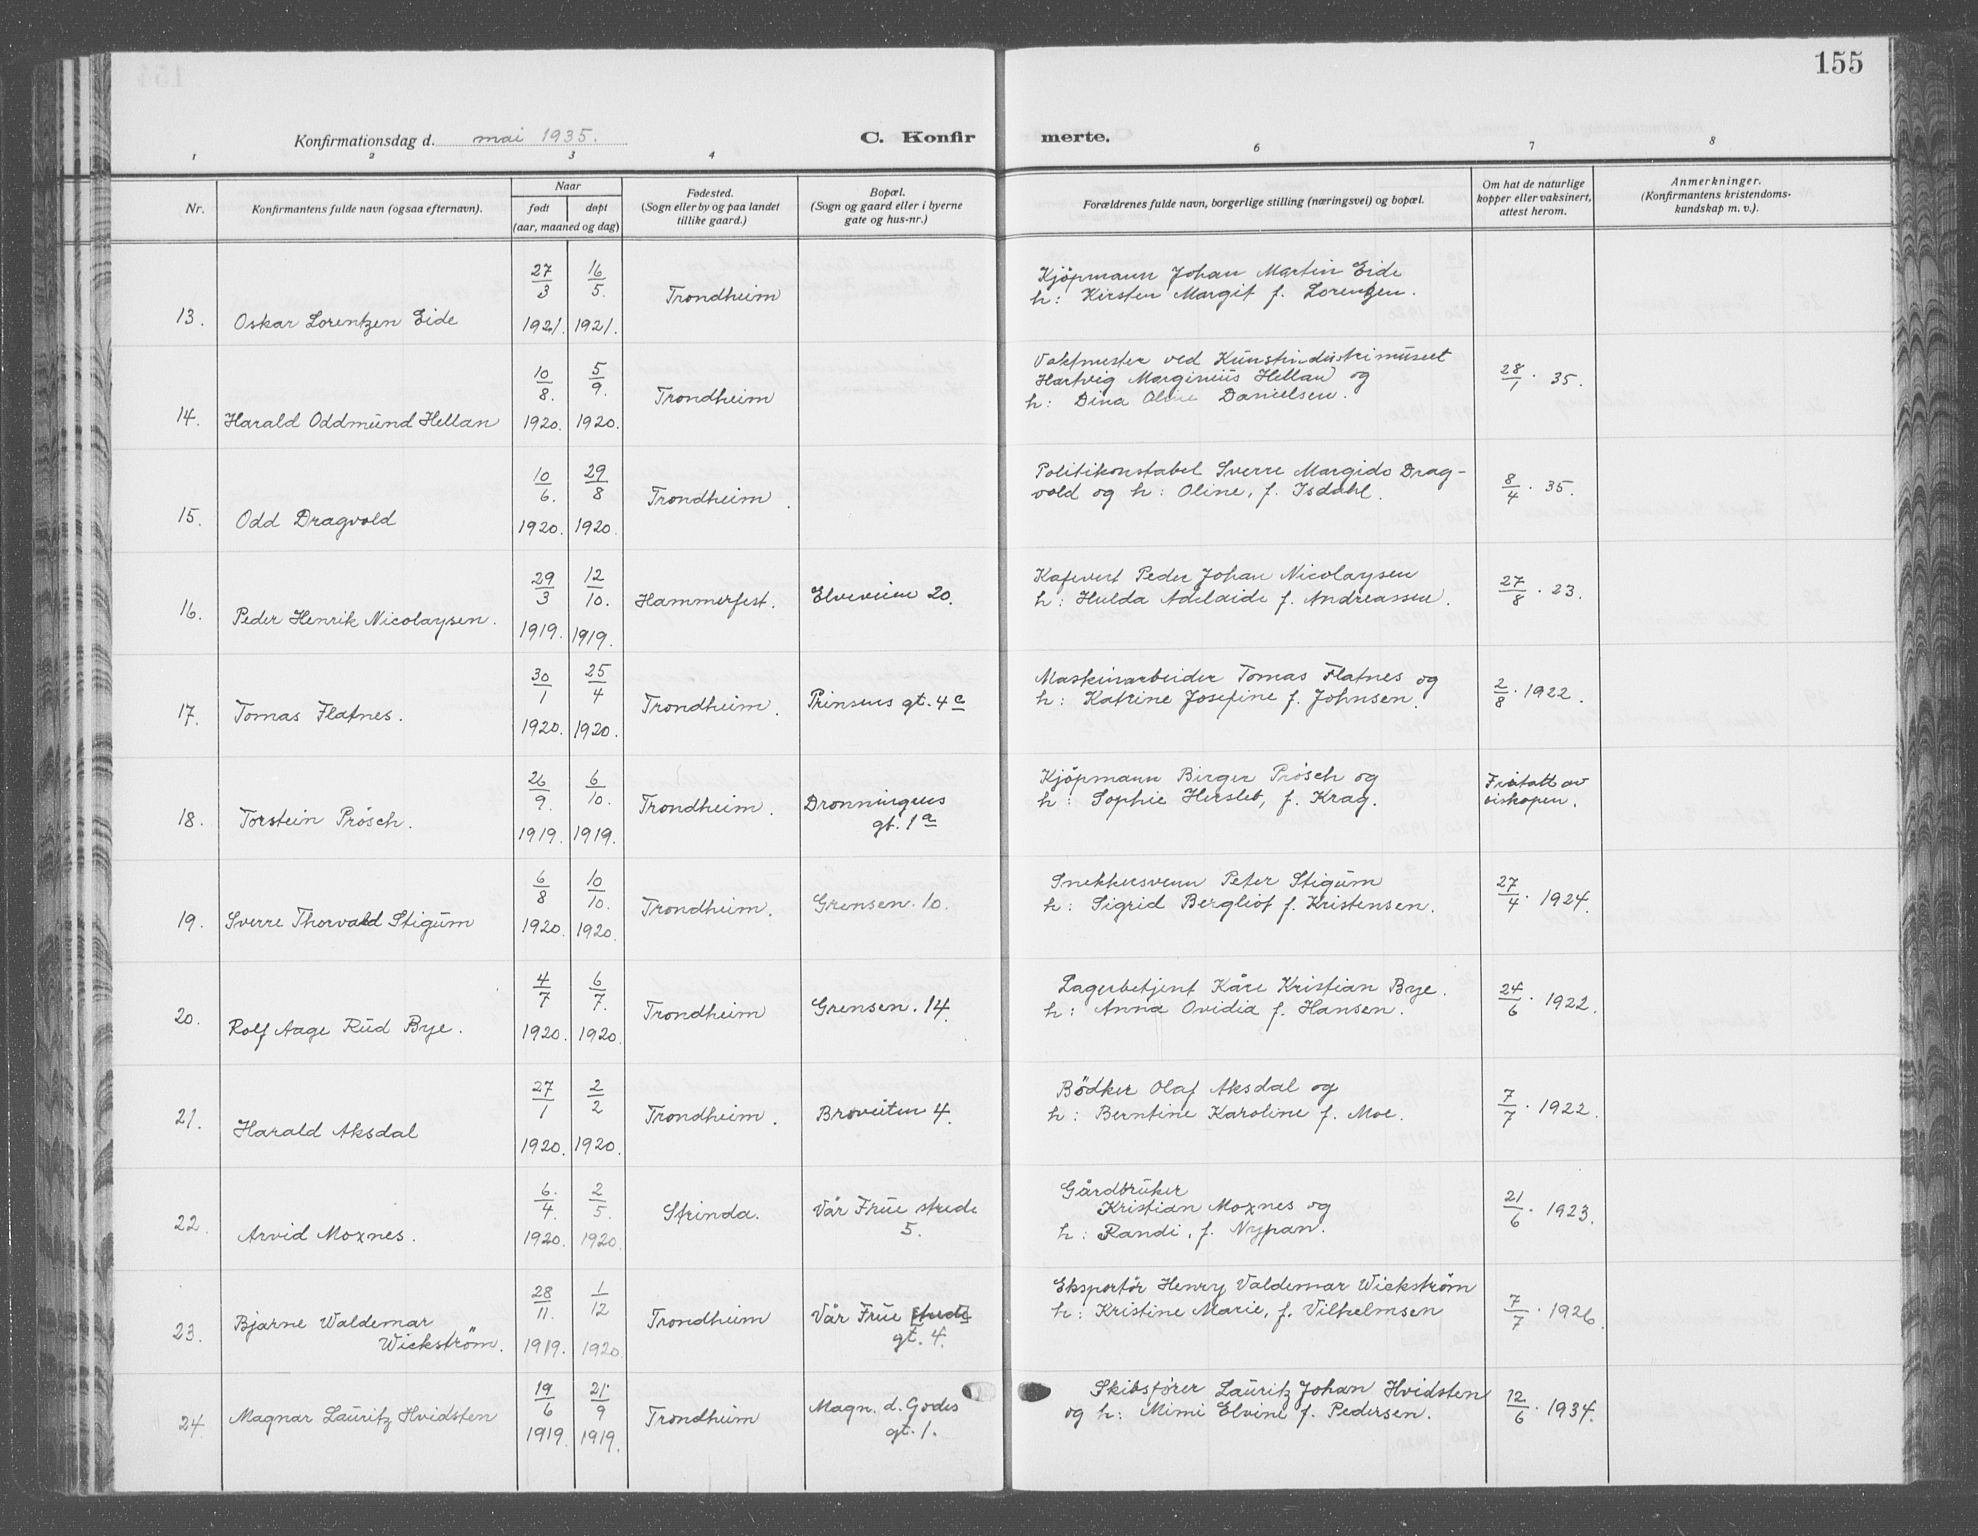 155
Konfirmationsdag d. mai 1935.
C. Konfir
merte.
1 2 3 4 6 7 8
Nr.
Konfirmantens fulde navn (ogsaa efternavn).
Naar
født døpt
(aar, maaned og dag)
Fødested.
(Sogn eller by og paa landet
tillike gaard.)
Bopæl.
(Sogn og gaard eller i byerne
gate og hus-nr.)
Forældrenes fulde navn, borgerlige stilling (næringsvei) og bopæl.
Om hat de naturlige
kopper eller vaksinert,
attest herom.
Anmerkninger.
(Konfirmantens kristendoms-
kundskap m. v.).
13. Oskar Lorentzen Eide
27/3 1921. 16/5. 1921.
Trondheim
Kjöpmann Johan Martin Eide
h: Kirsten Margit f. Lorentzen.
14. Harald Oddmund Hellan
10/8. 1920. 5/9. 1920.
Trondheim
Vaktmester ved Kunstindustrimuseet
Hartvig Marginius Hellan og
h: Dina Oline Danielsen.
28/1. 35.
15. Odd Dragvold
10/6. 1920. 29/8 1920.
Trondheim.
Politikonstabel Sverre Margido Drag-
vold og h: Oline, f. Isdahl.
8/4. 35.
16. Peder Henrik Nicolaysen.
29/3 1919. 12/10. 1919.
Hammerfest.
Elveveien 20.
Kafevert Peder Johan Nicolaysen
h: Hulda Adelaide f. Andreassen.
27/8. 23.
17. Tomas Flatnes.
30/1 1920. 25/4 1920.
Trondheim.
Prinsens gt. 4 c
Maskinarbeider Tomas Flatnes og
h: Katrine Josefine f. Johnsen.
2/8. 1922.
18. Torstein Prösch.
26/9. 1919. 6/10. 1919.
Trondheim.
Dronningens
gt. 1 a
Kjöpmann Birger Prösch og
h: Sophie Hersleb, f. Krag.
Fritatt av
biskopen.
19. Sverre Thorvald Stigum
6/8 1920. 10/10. 1920.
Trondheim.
Grensen. 10.
Snekkersvenn Peter Stigum
h: Sigrid Bergliot f. Kristensen.
27/4. 1924.
20. Rolf Aage Rud Bye.
4/7 1920. 6/7. 1920.
Trondheim
Grensen. 14.
Lagerbetjent Kåre Kristian Bye.
h: Anna Ovidia f. Hansen.
24/6. 1922.
21. Harald Aksdal
27/1 1920. 2/2 1920.
Trondheim.
Broveiten 4.
Bödker Olaf Aksdal og
h: Berntine Karoline f. Moe.
7/7. 1922.
22. Arvid Moxnes.
6/4. 1920. 2/5. 1920.
Strinda.
Vår Frue strede
5.
Gårdbruker
Kristian Moxnes og
h: Randi, f. Nypan.
21/6. 1923.
23. Bjarne Waldemar
Wickström.
28/11. 1919. 1/12 1920.
Trondheim
Vår Frue strede
gt. 4.
Eksportör Henry Valdemar Wickström
h: Kristine Marie, f. Vilhelmsen
7/7. 1926.
24. Magnar Lauritz Hvidsten
19/6 1919. 21/9 1919.
Trondheim
Magn. d. Godes
gt. 1.
Skibsfører Lauritz Johan Hvidsten
og h: Mimi Elvine f. Pedersen.
12/6. 1934.